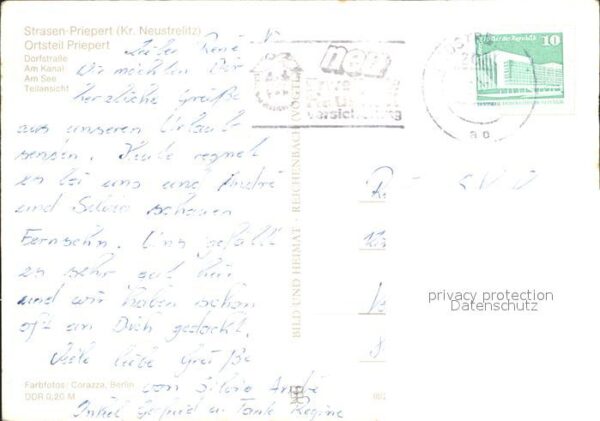 Strasen-Priepert (Kr. Neustrelitz)
Ortsteil Priepert
Dorfstraße
Am Kanal
Am See
Teilansicht
Lieber René
Wir möchten Dir
herzliche Grüße
aus unseren Urlaub
senden. Heute regnet
es bei uns und André
und Silvio schauen
Fernsehn. Uns gefällt
es sehr gut hier
und wir haben schon
oft an Dich gedacht.
Viele liebe Grüße
von Silvio André
Onkel u. Tante Regine
Farbfotos: Corazza, Berlin
DDR 0,20 M
BILD UND HEIMAT · REICHENBACH (VOGTL
neu
versicherung
der Republik
10
privacy protection
Datenschutz